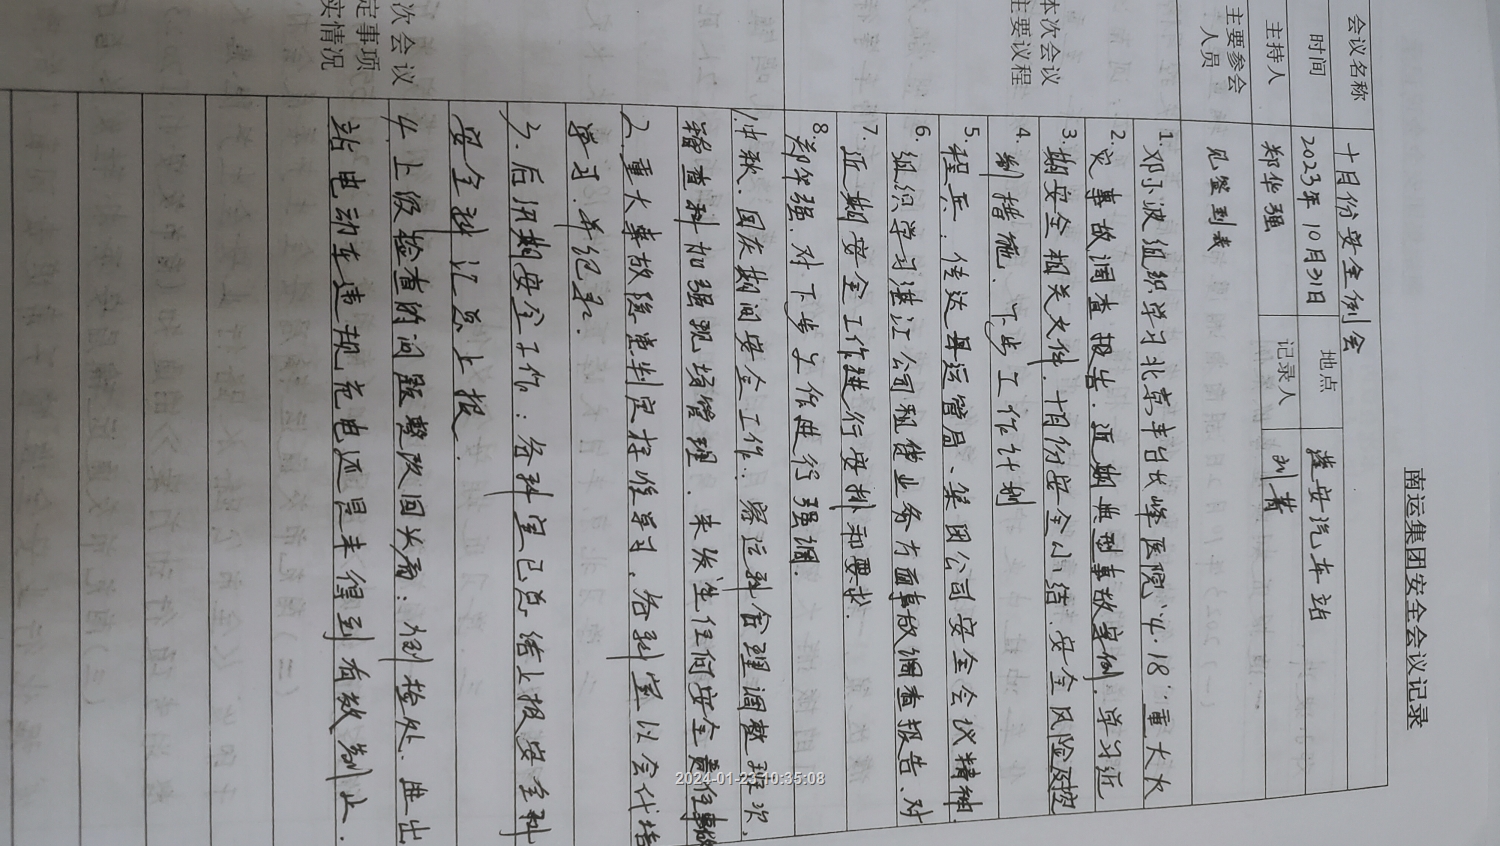 南运集团安全会议记录
会议名称 十月份安全例会
时间 2023年10月31日 地点 遂安汽车站
主持人 郑华强 记录人 刘菁
主要参会人员 见签到表
本次会议主要议程
1. 邓小波组织学习北京丰台长峰医院"4.18"重大火
2. 灾事故调查报告、近期典型事故案例、学习近
3. 期安全相关文件、十月份安全小结、安全风险及控
4. 制措施、下步工作计划
5. 程兵、传达县运管局、集团公司安全会议精神、
6. 组织学习湛江公司租赁业务方面事故调查报告、对
7. 近期安全工作进行安排和要求.
8. 郑华强、对下步工作进行强调.
次会议
定事项
实情况
1.中秋、国庆期间安全工作:客运科合理调整班次,
稽查科加强现场管理、未发生任何安全责任事故
2.重大事故隐患判定标准学习、各科室以会代培
学习、并纪录.
3.后汛期安全工作:各科室已总结上报安全科
安全科汇总上报.
4.上级检查的问题整改回头看:例检处、进出
站电动车违规充电还是未得到有效制止.
2024-01-23 10:35:08